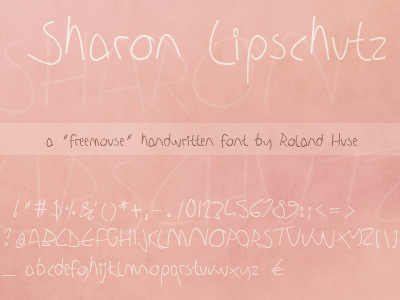 Sharon Lipschutz
a "freemouse" handwritten font by Roland Huse
!"#$%&'()*+,-./0123456789:;<=>
?@ABCDEFGHIJKLMNOPQRSTUVWXYZ[\]
_ abcdefghijklmnopqrstuvwxyz €